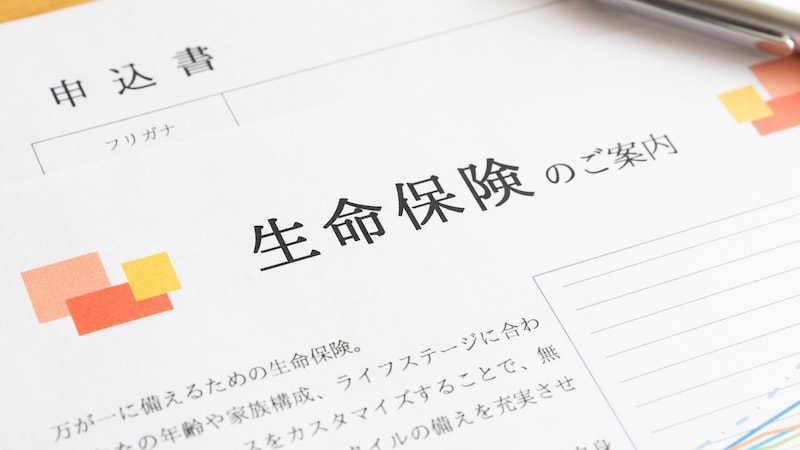 申込書
フリガナ
生命保険のご案内
万が一に備えるための生命保険。
たの年齢や家族構成、ライフステージに合わ
スをカスタマイズすることで、無
イルの備えを充実させ
自身